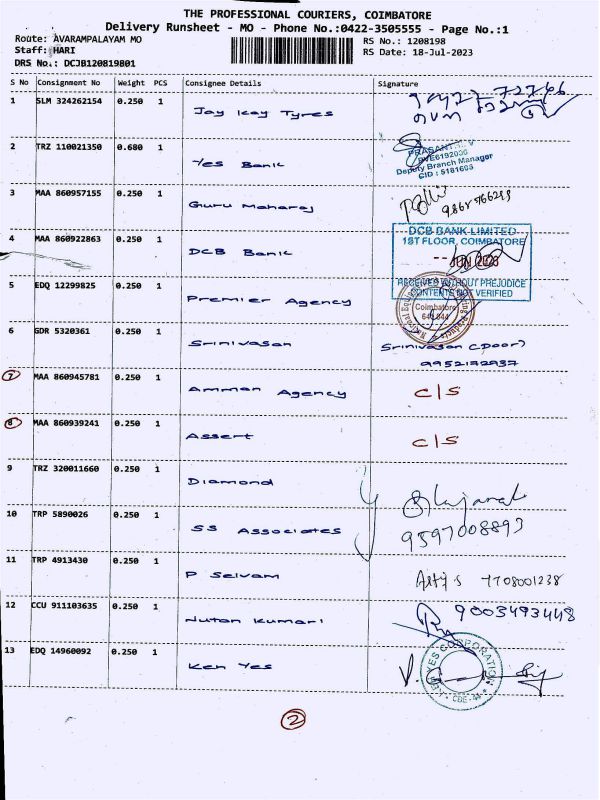 THE PROFESSIONAL COURIERS, COIMBATORE
Delivery Runsheet - MO - Phone No.:0422-3505555 - Page No.:1
Route: AVARAMPALAYAM MO
Staff: HARI
DRS No.: DCJB120819801
RS No.: 1208198
RS Date: 18-Jul-2023
S No Consignment No Weight PCS Consignee Details Signature
1 SLM 324262154 0.250 1 Jay Kay Tyres
2 TRZ 110021350 0.680 1 Yes Bank
PRASANT V
Deputy Branch Manager
CID : 5181695
3 MAA 860957155 0.250 1 Guru Maharaj
4 MAA 860922863 0.250 1 DCB Bank
DCB BANK LIMITED
1ST FLOOR, COIMBATORE
RECEIVED WITHOUT PREJUDICE
CONTENTS NOT VERIFIED
5 EDQ 12299825 0.250 1 Premier Agency
Coimbatore
6 GDR 5320361 0.250 1 Srinivasan Srinivasan (Door)
9952192937
7 MAA 860945781 0.250 1 Amman Agency C/S
8 MAA 860939241 0.250 1 Assert C/S
9 TRZ 320011660 0.250 1 Diamond
10 TRP 5890026 0.250 1 SS Associates 9597008893
11 TRP 4913430 0.250 1 P Selvam 7708001238
12 CCU 911103635 0.250 1 Nutan Kumari 9003493448
13 EDQ 14960092 0.250 1 Ken Yes
YES CORPORATION
CBE-44
2